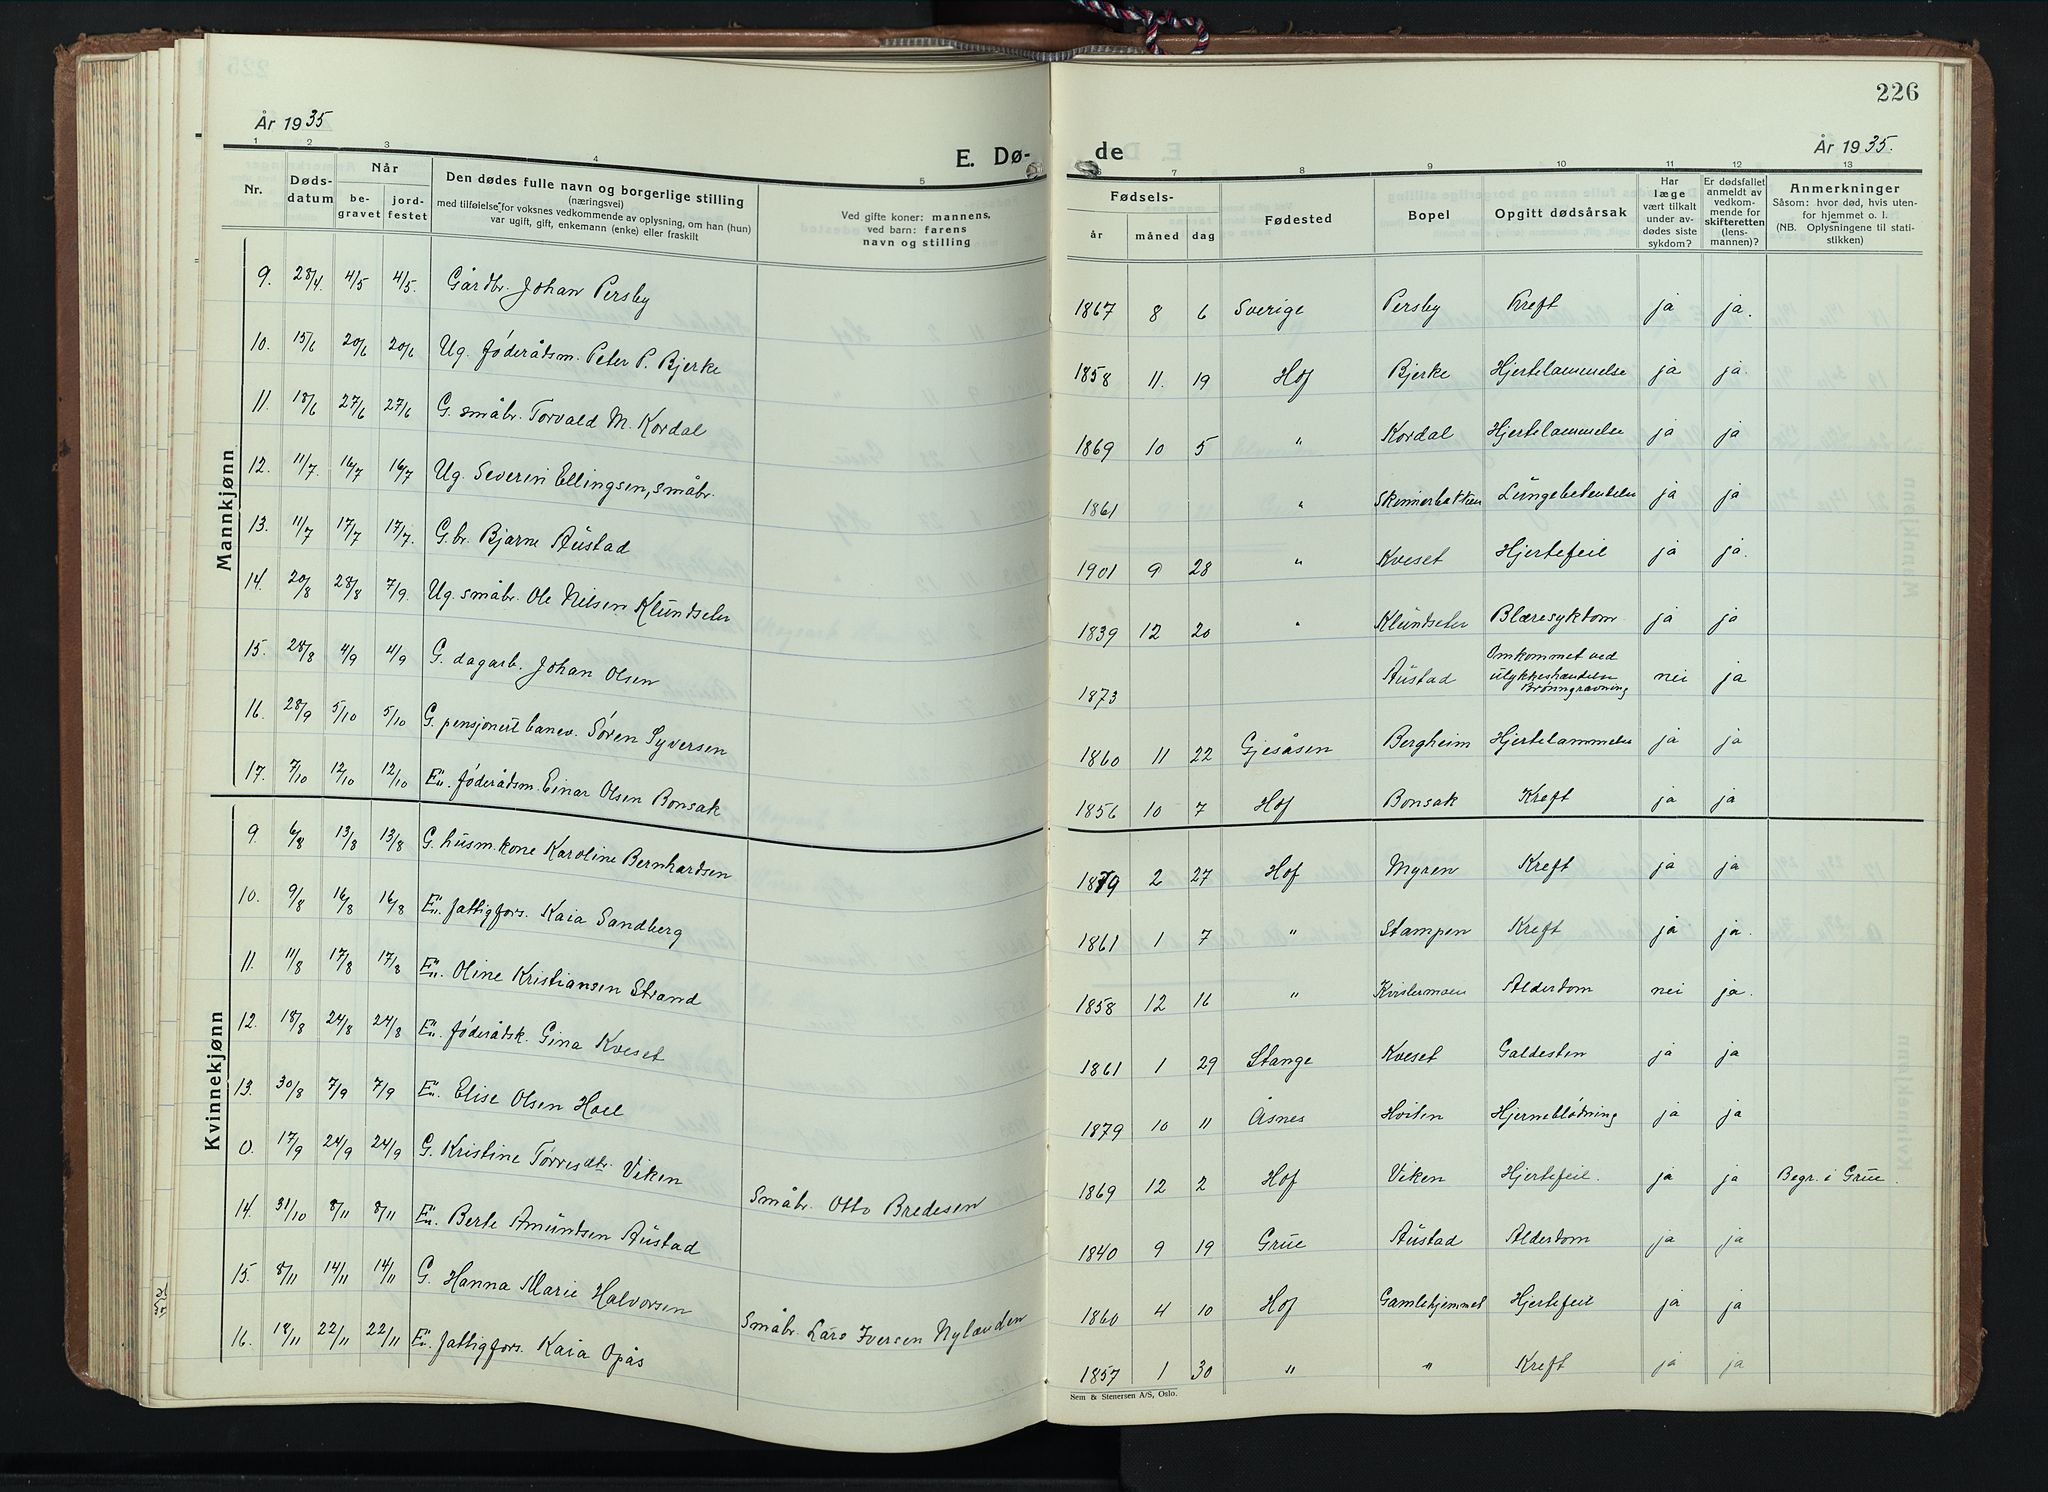 226
År 1935
År 1935.
E. Dø-
de
1 2 3 4 5 7 8 9 10 11 12 13
Nr. | Dødsdatum | Når begravet | jordfestet | Den dødes fulle navn og borgerlige stilling (næringsvei) med tilføielse for voksnes vedkommende av oplysning, om han (hun) var ugift, gift, enkemann (enke) eller fraskilt | Ved gifte koner: mannens, ved barn: farens navn og stilling | Fødsels- år | måned | dag | Fødested | Bopel | Opgitt dødsårsak | Har læge vært tilkalt under avdødes siste sykdom? | Er dødsfallet anmeldt av vedkommende for skifteretten (lensmannen)? | Anmerkninger Såsom: hvor død, hvis utenfor hjemmet o. l. (NB. Oplysningene til statistikken)
Mannkjønn
9. 28/4. 4/5 4/5. Gårdbr. Johan Persby 1867 8 6 Sverige Persby Kreft ja ja.
10. 15/6 20/6 20/6 Ug. føderådsm. Peter P. Bjerke 1858 11. 19 Hof Bjerke Hjertelammelse ja ja.
11. 18/6 27/6 27/6 G. småbr. Torvald M. Kordal 1869 10 5 " Kordal Hjertelammelse ja ja
12. 11/7. 16/7 16/7 Ug. Severin Ellingsen, småbr. 1861 " Lungebetendelse ja ja
13. 11/7 17/7 17/7. G.br. Bjarne Austad 1901 9 28 " Kveset Hjertefeil ja ja.
14. 20/8 28/8 7/9. Ug. småbr. Ole Nilsen Klundseter 1839 12 20 " Klundseter Blæresykdom ja ja
15. 28/8 4/9 4/9 G. dagarb. Johan Olsen 1873 Austad Omkommet ved ulykkeshendelse Brønngravning nei ja
16. 28/9 5/10 5/10 G. pensjonert banev. Søren Syversen 1860 11 22 Gjesåsen Bergheim Hjertelammelse ja ja
17. 7/10 12/10 12/10 En. føderådsm. Einar Olsen Bonsak 1856 10 7 Hof Bonsak Kreft ja ja
Kvinnekjønn
9. 6/8 13/8 13/8 G. husm.kone Karoline Bernhardsen 1879 2 27 Hof Myren Kreft ja ja
10. 9/8 16/8 16/8 En. fattigfors. Kaia Sandberg 1861 1 7 " Stampen Kreft ja ja.
11. 11/8 17/8 17/8 En. Oline Kristiansen Strand 1858 12 16 " Kvistermoen Alderdom nei ja.
12. 18/8 24/8 24/8 En. føderådsk. Gina Kveset 1861 1 29 Stange Kveset Galdesten ja ja
13. 30/8 7/9 7/9 En. Elise Olsen Hoel 1879 10 11 Åsnes Hviten Hjerneblødning ja ja
0. 17/9 24/9 24/9 G. Kristine Torresdtr. Viken Småbr. Otto Bredesen 1869 12 2 Hof Viken Hjertefeil. ja ja Begr. i Grue.
14. 31/10 8/11 8/11 En. Berte Amundsen Austad 1840 9 19 Grue Austad Alderdom ja ja
15. 8/11 14/11 14/11 G. Hanna Marie Halvorsen Småbr. Lars Iversen Nylenden 1860 4 10 Hof Gamlehjemmet Hjertefeil ja ja
16. 18/11 22/11 22/11 En. fattigfors. Kaia Opås 1857 1 30 " " Kreft ja ja
Sem & Stenersen A/S, Oslo.